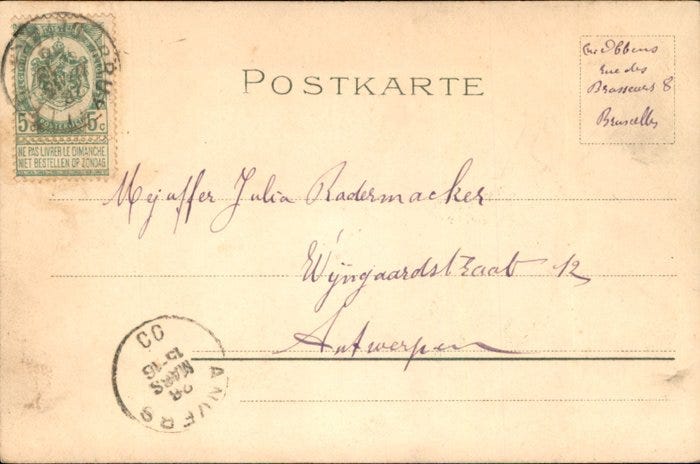 5c 5c
NE PAS LIVRER LE DIMANCHE
NIET BESTELLEN OP ZONDAG
POSTKARTE
rue des
Brasseurs 8
Bruxelles
Mejuffer Julia Radermacker
Wijngaardstraat 12
Antwerpen
ANVERS
28
MARS
15-16
00